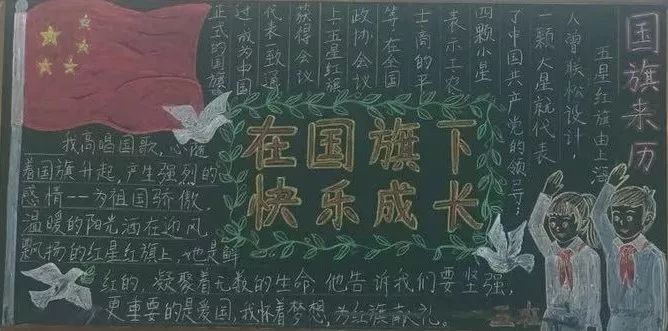 国旗来历
五星红旗由上海
人曾联松设计，
一颗大星就代表
了中国共产党的领导；
四颗小星
表示工农
士商的平
等在全国
政协会议
上五星红旗
获得会议
代表一致通
过成为中国
正式的国旗
在国旗下
快乐成长
我高唱国歌，心随
着国旗升起，产生强烈的
感情——为祖国骄傲。
温暖的阳光洒在迎风
飘扬的红星红旗上，她是鲜
红的，凝聚着无数的生命，他告诉我们要坚强，
更重要的是爱国，我怀着梦想，为红旗献礼。